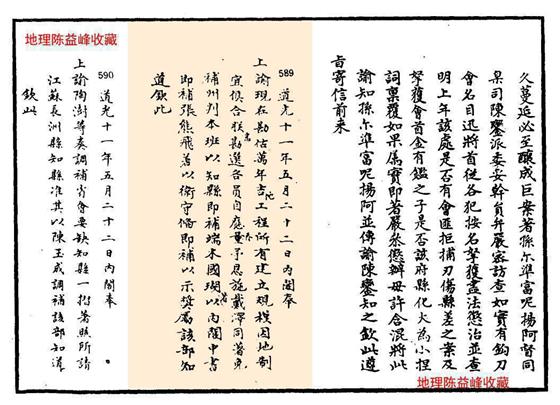 地理陈益峰收藏
久蔓延必至釀成巨案著孫尔準富呢揚阿督同
臬司陳鑾派委妥幹員弁嚴密訪查如實有鈎刀
會名目迅將首從各犯按名拏獲盡法懲治並查
明上年該處是否有會匪拒捕刃傷縣差之案及
拏獲會首金有鑑之子是否該府縣化大為小捏
詞稟覆如果屬實即著嚴叅懲辦毋許含混將此
諭知孫尔準富呢揚阿並傳諭陳鑾知之欽此遵
旨寄信前来
589 道光十一年五月二十二日内閣奉
上諭現在勘估萬年吉地工程所有建立規模因地制
宜俱合朕意勘選各員自應量予恩施戴澤同著免
補州判本班以知縣即補端木國瑚以内閣中書
即補張熊飛著以衛守備即補以示奨勵該部知
道欽此
590 道光十一年五月二十二日内閣奉
上諭陶澍等奏調補省會要缺知縣一摺著照所請
江蘇長洲縣知縣准其以陳玉成調補該部知道
欽此
地理陈益峰收藏